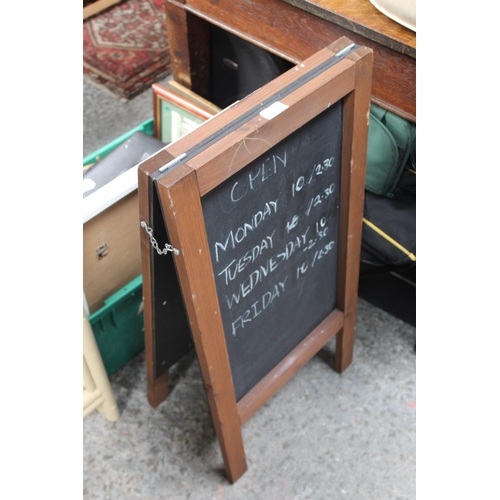 OPEN
MONDAY 10/2.30
TUESDAY 10/2.30
WEDNESDAY 10/2.30
FRIDAY 10/2.30